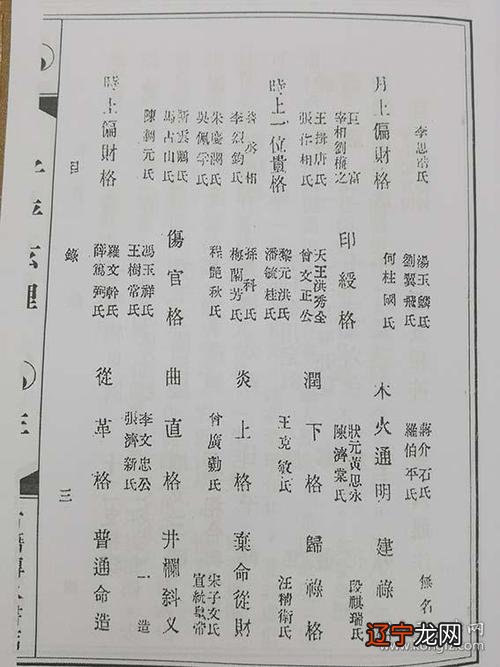 湯玉麟氏 蔣介石氏 無名
劉翼飛氏 羅伯平氏
月上偏財格 何柱國氏 木火通明 建祿
巨富 狀元黃思永氏 段祺瑞氏
宰相劉權之 印綬格 陳濟棠氏
王揖唐氏 天王洪秀全 潤下格 歸祿格
張作相氏 曾文正公
時上一位貴格 黎元洪氏 王克敏氏 汪精衛氏
潘毓桂氏
孫科氏 炎上格 棄命從財
李烈鈞氏 梅蘭芳氏
朱慶瀾氏 程艷秋氏 宋子文氏
吳佩孚氏 宣統皇帝
靳雲鶚氏 傷官格 曲直格 井欄斜叉
馬占山氏
陳調元氏 馮玉祥氏 李文忠公 一造
王樹常氏 張濟新氏
時上偏財格 羅文幹氏 從革格 普通命造
薛篤弼氏
目錄 三
辽宁龙网